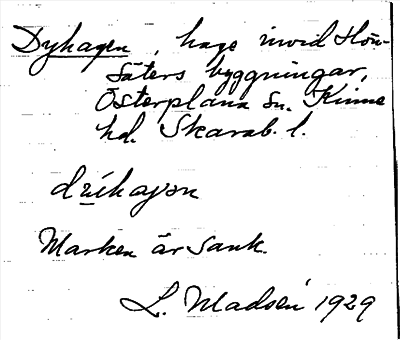 Dyhagen, hage invid Hön-
säters byggningar,
Österplana Sn. Kinne
hd. Skarab. l.
Marken är sank.
L. Madsén 1929